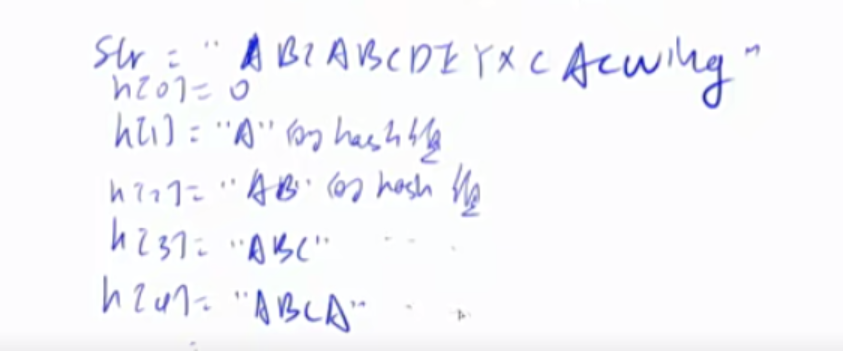 str = "ABCABCDEYXCAcwing"
h[0] = 0
h[1] = "A" 的 hash 值
h[2] = "AB" 的 hash 值
h[3] = "ABC" ...
h[4] = "ABCA" ..